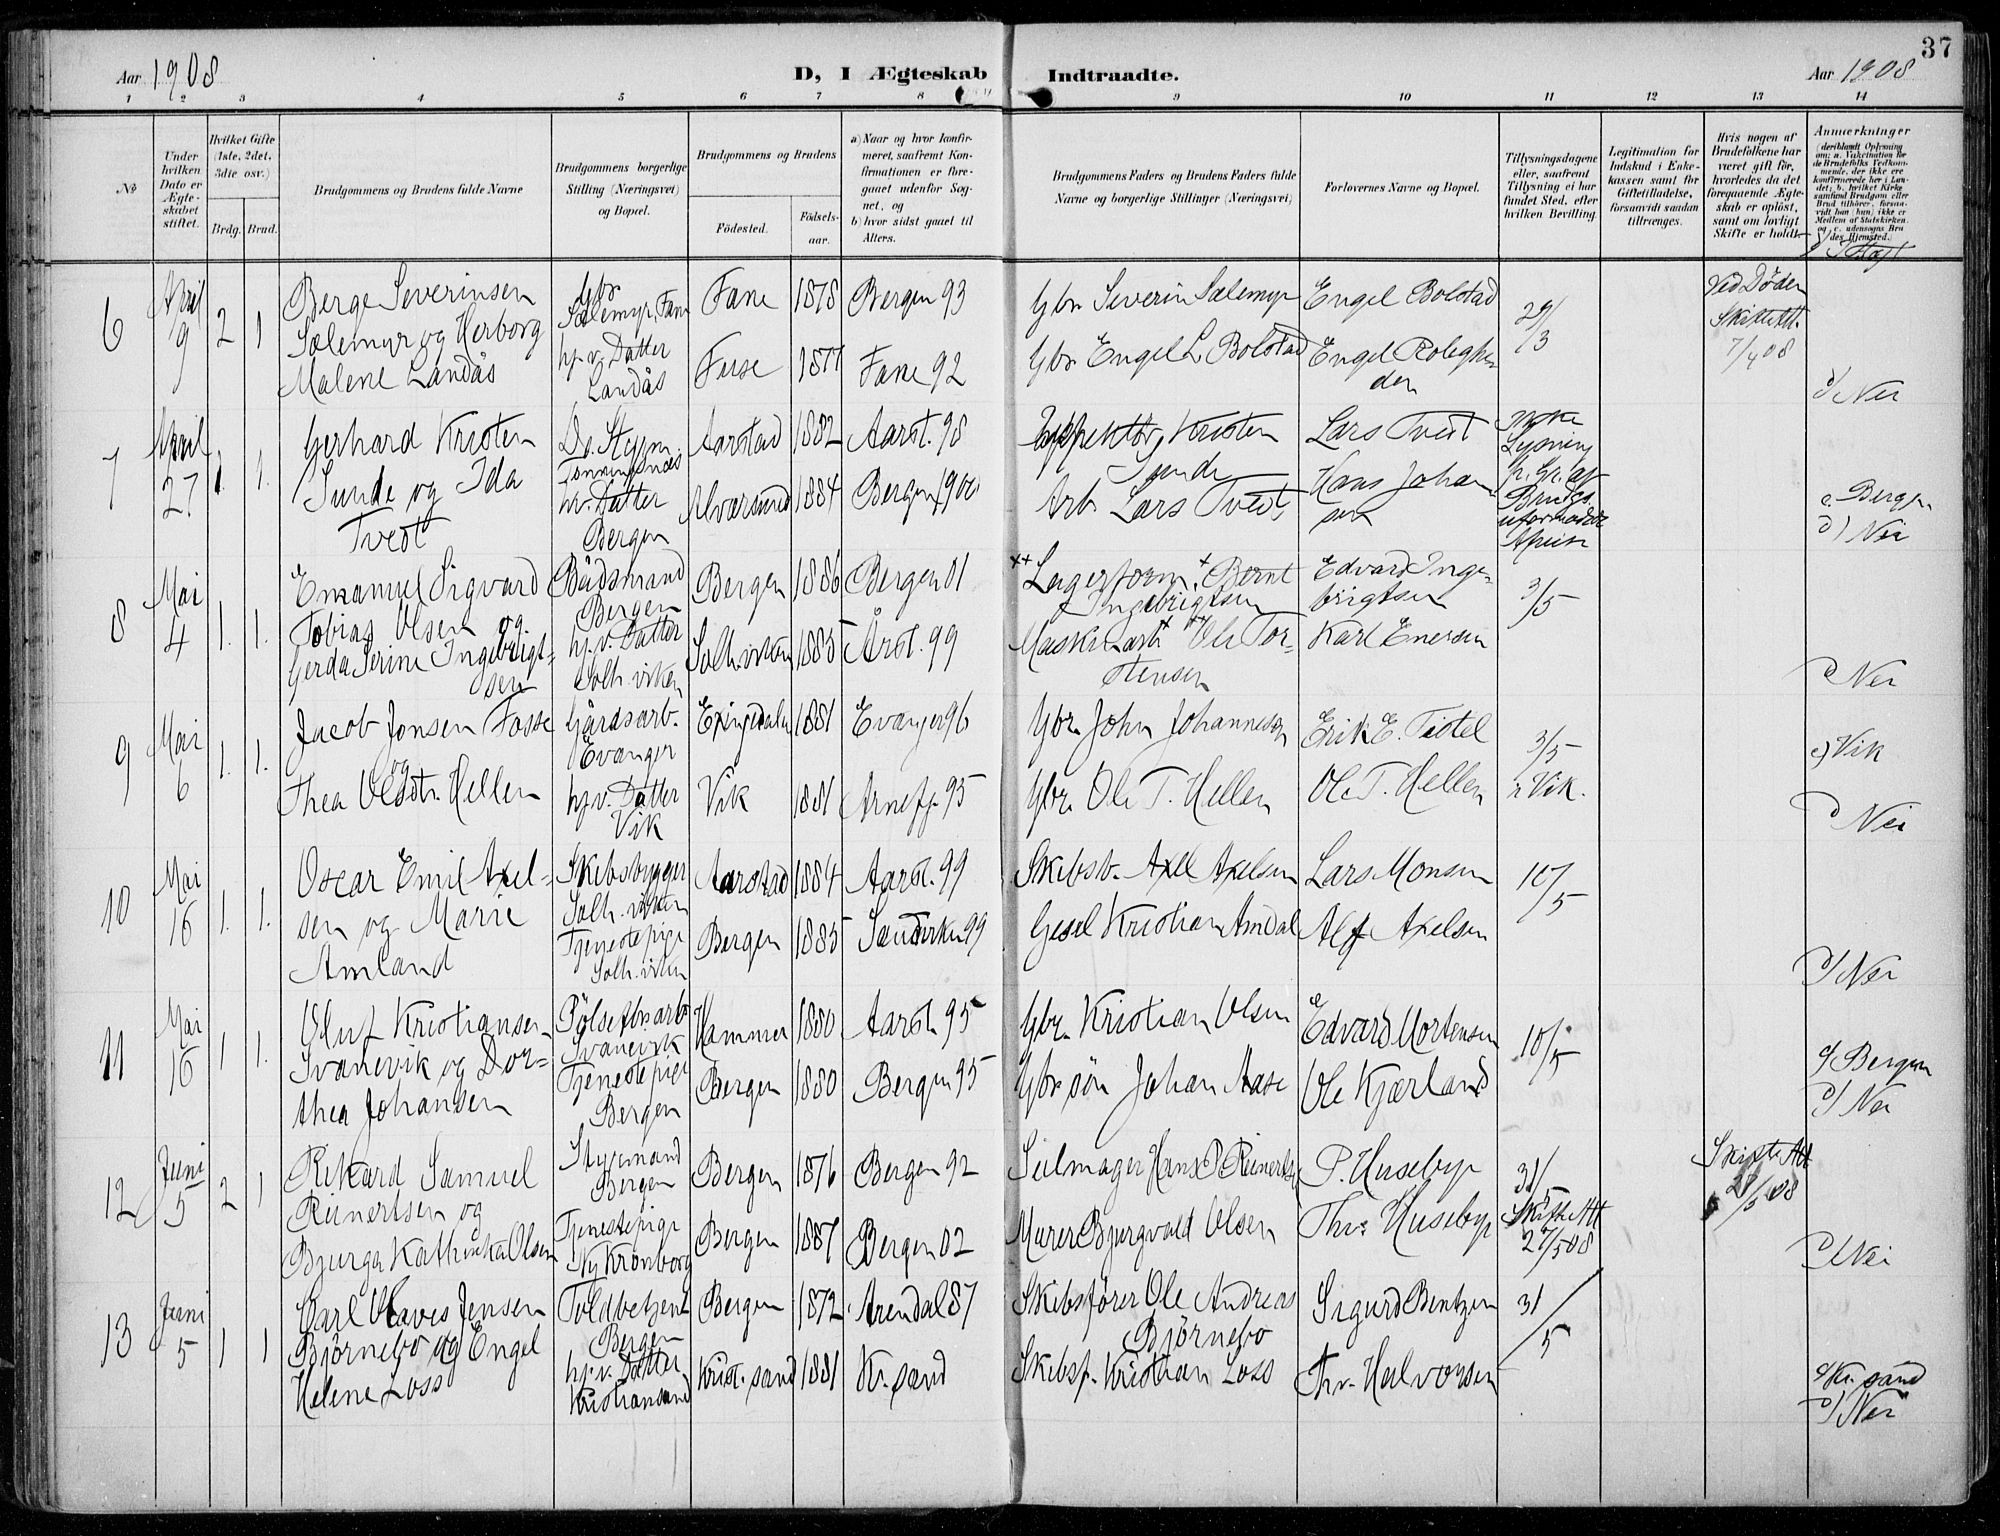 37
Aar 1908
D, I Ægteskab
Indtraadte.
Aar 1908
1 2 3 4 5 6 7 8 9 10 11 12 13 14
No
Under hvilken Dato er Ægteskabet stiftet.
Hvilket Gifte (1ste, 2det, 3die osv.)
Brdg. Brud.
Brudgommens og Brudens fulde Navne
Brudgommens borgerlige Stilling (Næringsvei) og Bopæl.
Brudgommens og Brudens
Födested.
Födselsaar.
a) Naar og hvor konfirmeret, saafremt Konfirmationen er foregaaet udenfor Sognet, og
b) hvor sidst gaaet til Alters.
Brudgommens Faders og Brudens Faders fulde Navne og borgerlige Stillinger (Næringsvei)
Forlovernes Navne og Bopæl.
Tillysningsdagene eller, saafremt Tillysning ei har fundet Sted, efter hvilken Bevilling.
Legitimation for Indskud i Enkekassen samt for Giftetilladelse, forsaavidt saadan tiltrænges.
Hvis nogen af Brudefolkene har været gift før, hvorledes da det foregaaende Ægteskab er oplöst, samt om lovligt Skifte er holdt.
Anmærkninger (deriblandt Oplysning om: a. Vakcination for de Brudefolks Vedkommende, der ikke ere konfirmerede her i Landet; b. hvilket Kirkesamfund Brudgom eller Brud tilhörer, forsaavidt han (hun) ikke er Medlem af Statskirken. og c. udensogns Brudes Hjemsted.)
6
April 9
2 1
Berge Severinsen
Sælemyr og Herborg
Malene Landås
Gbr
Sælemyr, Fane
hj.v. Datter
Landås
Fane 1878 Bergen 93
Fuse 1877 Fane 92
Gbr Severin Sælemyr
Gbr Engel L Bolstad
Engel Bolstad
Engel
29/3
Ved Döden
Skifte Att.
7/4 08
d/ Nei
7
April 27
1. 1.
Gerhard Kristen
Sunde og Ida
Tvedt
hv. Datter
Bergen
Aarstad 1882 Aarst. 98
Alversund 1884 Bergen 1900
Kristen
Sunde
Arb Lars Tvedt
Lars Tvedt
Hans Johansen
Ikke
Lysning
c. Bergen
d) Nei
8
Mai 4
1. 1.
Emanuel Sigvard
Tobias Olsen og
Gerda Serine Ingebrigtsen
Bådsmand
Bergen
hj.v. Datter
Solh.viken
Bergen 1886 Bergen 01
Solh.viken 1885 Årst. 99
++ Lagerform. + Bernt
Ingebrigtsen
Maskinarb ++ Ole Torstensen
Edvard Ingebrigtsen
Karl Enersen
3/5
d Nei
9
Mai 6
1. 1.
Jacob Jonsen Fosse
og
Thea Olsdtr. Hellen
Gårdsarb.
Evanger
hj.v. Datter
Vik
Exingedalen 1881 Evanger 96
Vik 1881 Arnefj. 95
Gbr. John Johannesen
Gbr. Ole T. Hellen
Erik E. Tistel
Ole T. Hellen
3/5
i Vik.
c) Vik
d Nei
10
Mai 16
1. 1.
Oscar Emil Axelsen og Marie
Amland
Skibsbygger
Solh.viken
Tjenestepige
Solh.viken
Aarstad 1884 Aarst. 99
Bergen 1885 Sandviken 99
Skibsb. Axel Axelsen
Kristian Amdal
Lars Monsen
Alf Axelsen
10/5
d/ Nei
11
Mai 16
1 1.
Oluf Kristiansen
Svanevik og Dorthea Johansen
Pölsefbr.arb
Svanevik
Tjenestepige
Bergen
Hammer 1880 Aarst. 95
Bergen 1880 Bergen 95
Gbr. Kristian Olsen
Gbr sön Johan Aase
Edvard Mortensen
Ole Kjærland
10/5
c/ Bergen
d/ Nei
12
Juni 5
2 1
Rikard Samuel
Reinertsen og
Bjurga Kathinka Olsen
Styrmand
Bergen
Tjenestepige
Ny Kronborg
Bergen 1876 Bergen 92
Bergen 1887 Bergen 02
Seilmager Hans P Reinertsen
Murer Bjurgvald Olsen
P. Huseby
Thv. Huseby
31/5
Skifte Att
27/5 08
Skifte Att
27/5 08
d/ Nei
13
Juni 5
1 1
Carl Olaves Jensen
Björnebo og Engel
Helene Loss
Toldbetjent
Bergen
hj.v. Datter
Kristiansand
Bergen 1872 Arendal 87
Krist.sand 1881 Kr.sand
Skibsförer Ole Andreas
Björnebo
Skibsf. Kristian Loss
Sigurd Bentzen
Thv. Halvorsen
31/5
c/ Kr.sand
d/ Nei